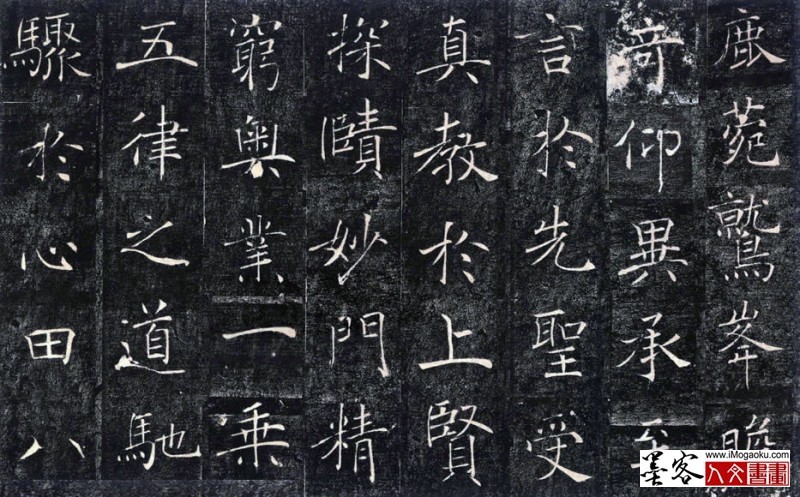 鹿菀鷲峯瞻
竒仰異承至
言於先聖受
真教於上賢
探賾妙門精
窮奧業一乘
五律之道馳
驟於心田八
墨客
www.iMogaoku.com
人文書畫